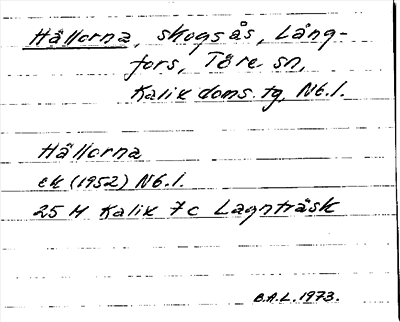 Hällorna, skogsås, Lång-
fors, Töre sn,
Kalix doms. tg, Nb.l.
Hällorna
ek (1952) Nb.l.
25 M Kalix 7c Lagnträsk
B.A.L. 1973.